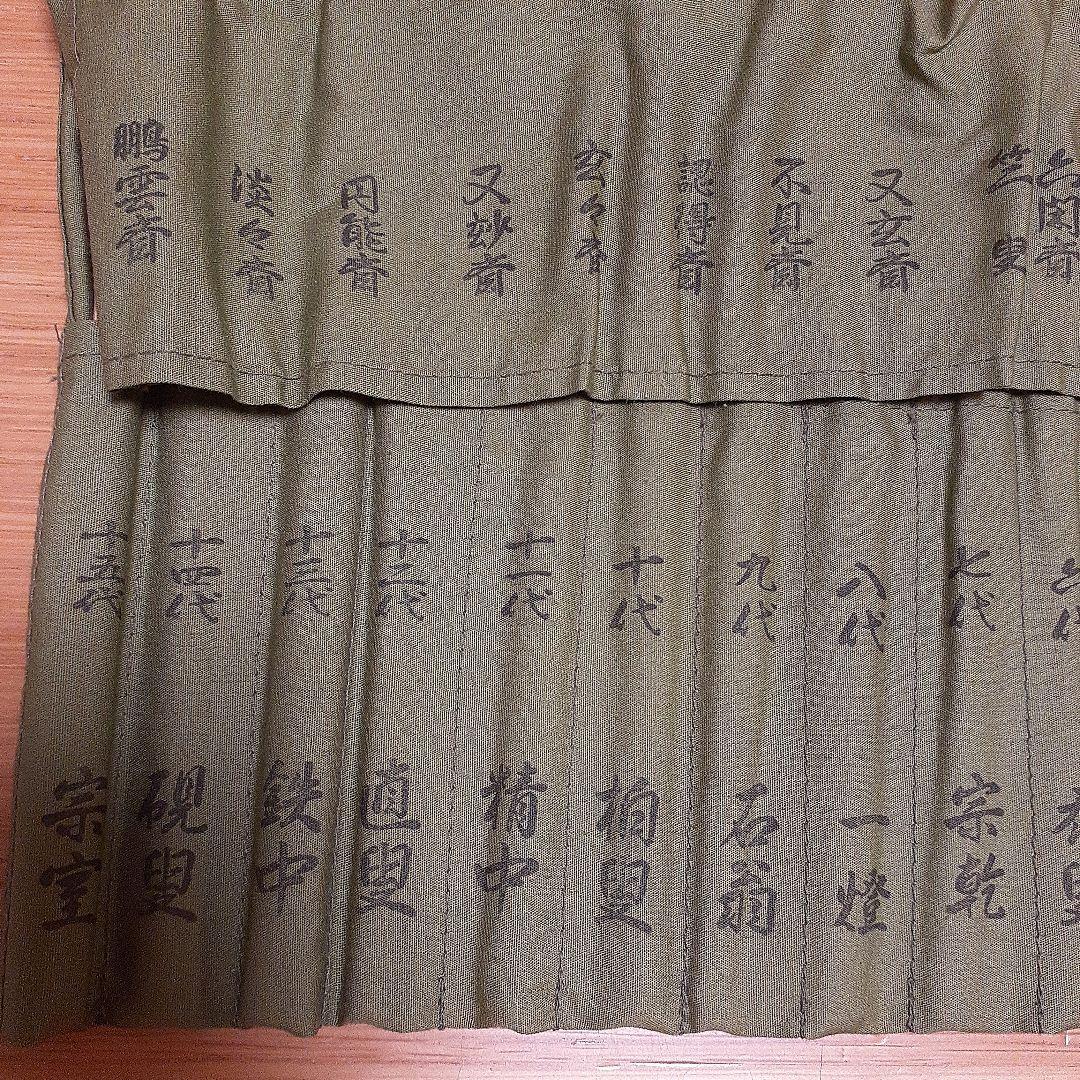 六閑斎
竺叟
又玄斎
不見斎
認得斎
玄々斎
又妙斎
円能斎
淡々斎
鵬雲斎
六代
七代
八代
九代
十代
十一代
十二代
十三代
十四代
十五代
宗乾
一燈
石翁
柏叟
精中
直叟
鉄中
硯叟
宗室